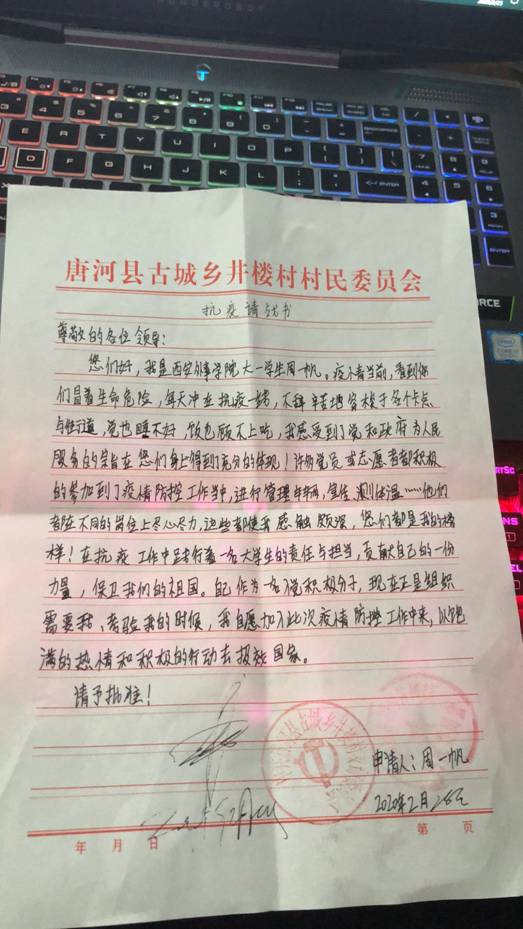 唐河县古城乡井楼村村民委员会
抗疫请战书
尊敬的各位领导：
您们好，我是西安外事学院大一学生周一帆。疫情当前，看到你
们冒着生命危险，每天冲在抗疫一线，不辞辛苦地穿梭于各个卡点
与街道，觉也睡不好，饭也顾不上吃，我感受到了党和政府为人民
服务的宗旨在您们身上得到了充分的体现！许多党员或志愿者都积极
的参加到了疫情防控工作当中，进行管理车辆，宣传，测体温……他们
都在不同的岗位上尽心尽力，这些都使我感触颇深，您们都是我的榜
样！在抗疫工作中我有着一名大学生的责任与担当，贡献自己的一份
力量，保卫我们的祖国。自己作为一名入党积极分子，现在正是组织
需要我、考验我的时候，我自愿加入此次疫情防控工作中来，以饱
满的热情和积极的行动去报效国家。
请予批准！
申请人：周一帆
2020年2月
年 月 日
第 页
ENTER